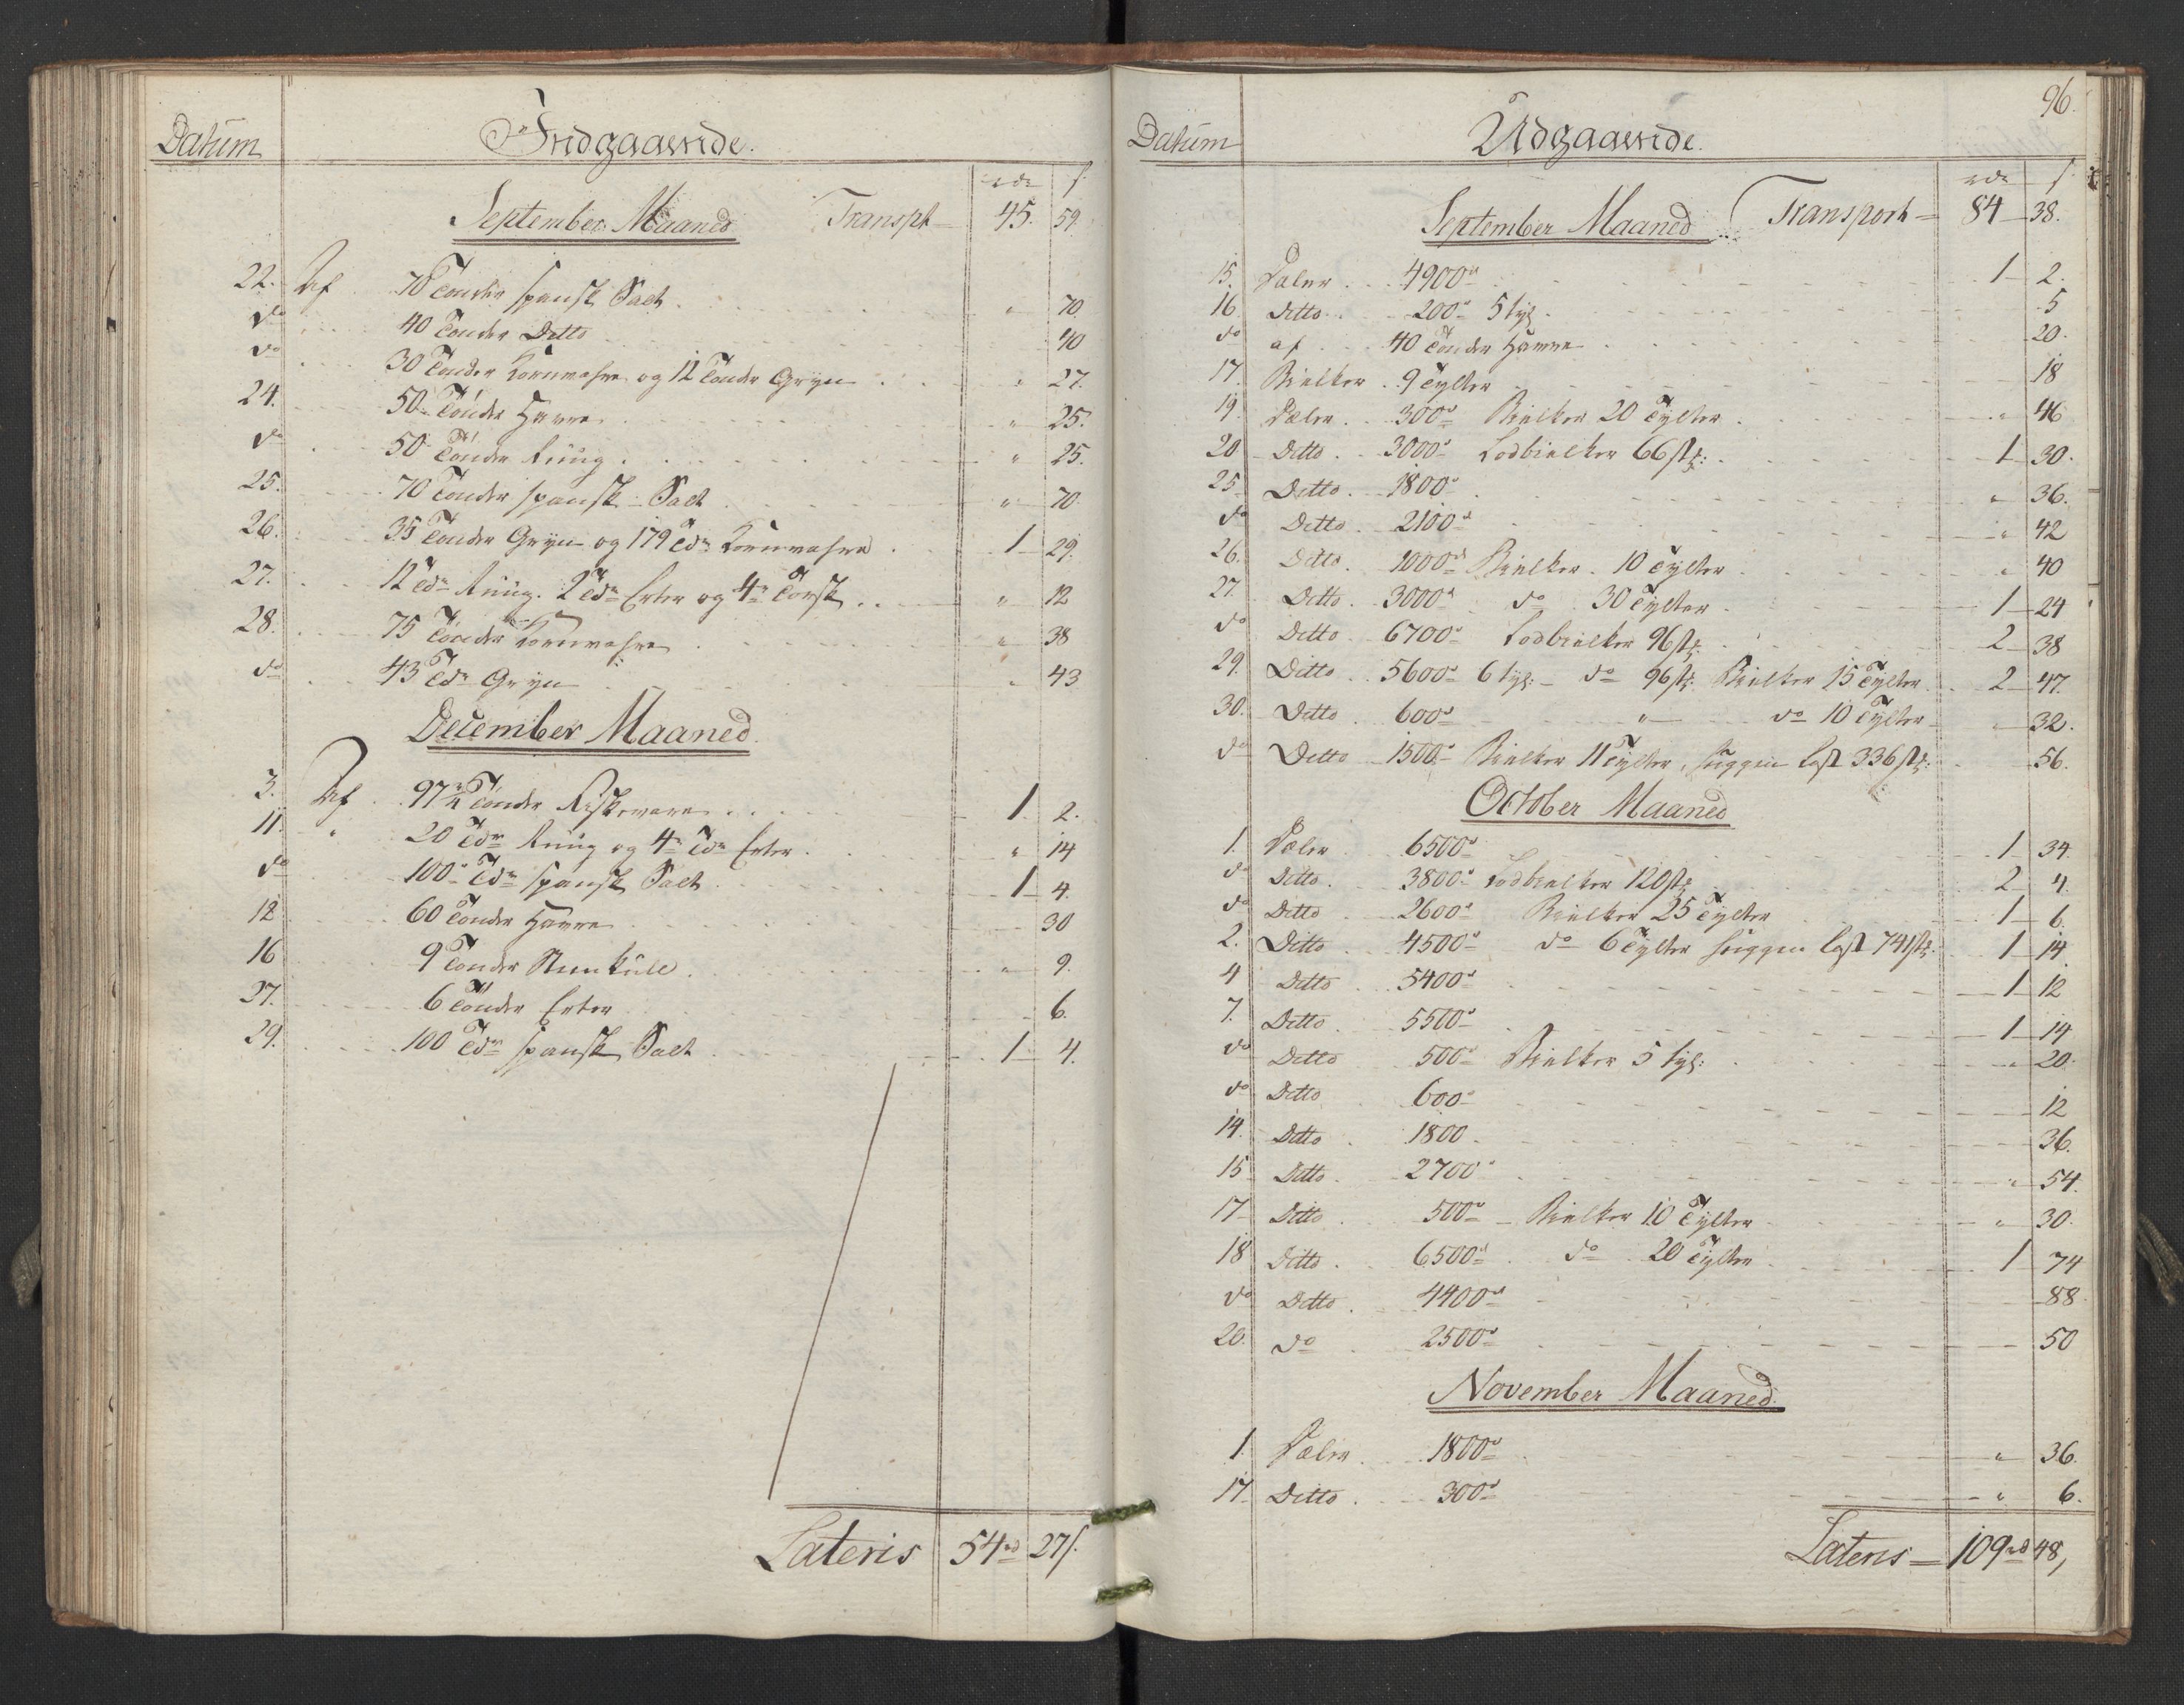 Datum
Indgaaende.
rdr ſ
September Maaned Transpt 45. 59.
22. Af 70 Tønder spansk Salt " 70.
do 40 Tønder Ditto 40
do 30 Tønder Kornvahre og 12 Tønder Gryn " 27.
24. 50 Tønder Havre " 25.
do 50 Tønder Ruug " 25.
25. 70 Tønder spansk Salt " 70.
26. 35 Tønder Gryn og 179 Tdr Kornvahre 1 29.
27. 12 Tdr Ruug. 2 Tdr Erter og 4 Torsk " 12
28. 75 Tønder Kornvahre " 38
do 43 Tdr Gryn " 43
December Maaned.
3. Af 97½ Tønder Fiskevare 1 2.
11. " 20 Tdr Ruug og 4 Tdr Erter " 14
do 100 Tdr spansk Salt 1 4.
12 60 Tønder Havre 30
16 9 Tønder Steenkull " 9.
27. 6 Tønder Erter 6.
29. 100 Tdr spansk Salt 1 4.
Lateris 54rd 27ſ.
96.
Datum
Udgaaende.
rdr ſ
September Maaned Transport 84 38.
15. Dæler 4900 1 2.
16. Ditto 200 5 tyl. 5
do af 40 Tønder Havre 20.
17. Bielker 9 Tylter 18
19. Dæler 300 Bielker 20 Tylter " 46
20 Ditto 3000 Lodbielker 66 st: 1 30.
25 Ditto 1800 " 36.
do Ditto 2100 " 42
26. Ditto 1000 Bielker 10 Tylter " 40
27. Ditto 3000 do 30 Tylter 1 24
do Ditto 6700 Lodbielker 96 st: 2 38
29. Ditto 5600 6 tyl: do 96 st: Bielker 15 Tylter 2 47.
30. Ditto 600 " do 10 Tylter " 32.
do Ditto 1500 Bielker 11 Tylter, huggen Last 336 st: 56.
October Maaned
1. Dæler 6500 1 34.
do Ditto 3800 Lodbielker 120 st: 2 4.
do Ditto 2600 Bielker 25 Tylter 1 6.
2. Ditto 4500 do 6 Tylter huggen Last 741 st: 1 14.
4 Ditto 5400 1 12
7. Ditto 5500 1 14
do Ditto 500 Bielker 5 tyl: " 20.
do Ditto 600 12
14. Ditto 1800 36.
15 Ditto 2700 " 54.
17 Ditto 500 Bielker 10 Tylter " 30.
18 Ditto 6500 do 20 Tylter 1 74
do Ditto 4400 88.
20. do 2500 50
November Maaned.
1. Dæler 1800 " 36.
17. Ditto 300 " 6.
Lateris 109rd 48,